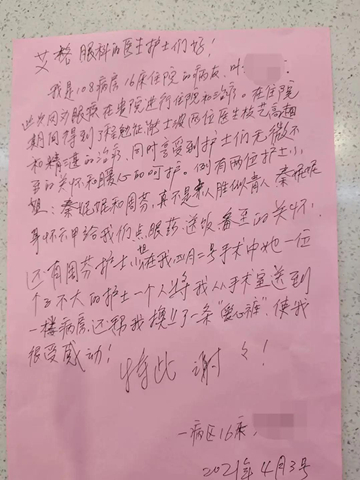 艾格眼科的医生护士们好！
我是108病房16床住院的病友，叫
因眼疾在贵院进行住院和治疗。在住院
期间得到了 两位医生技艺高超
和精湛的治疗，同时享受到护士们无微不
至的关怀和暖心的呵护。例有两位护士小
姐：秦妮妮和周芬，真不是亲人胜似亲人，秦妮妮
身怀六甲给我们点眼药、送饭 的关怀，
还有周芬护士小 在我四月二号手术中她一位
个不大的护士一个人将我从手术室送到
一楼病房，还帮我换了一条“爱心裤”使我
很受感动！
特此 谢谢！
一病区16床，
2021年4月3号